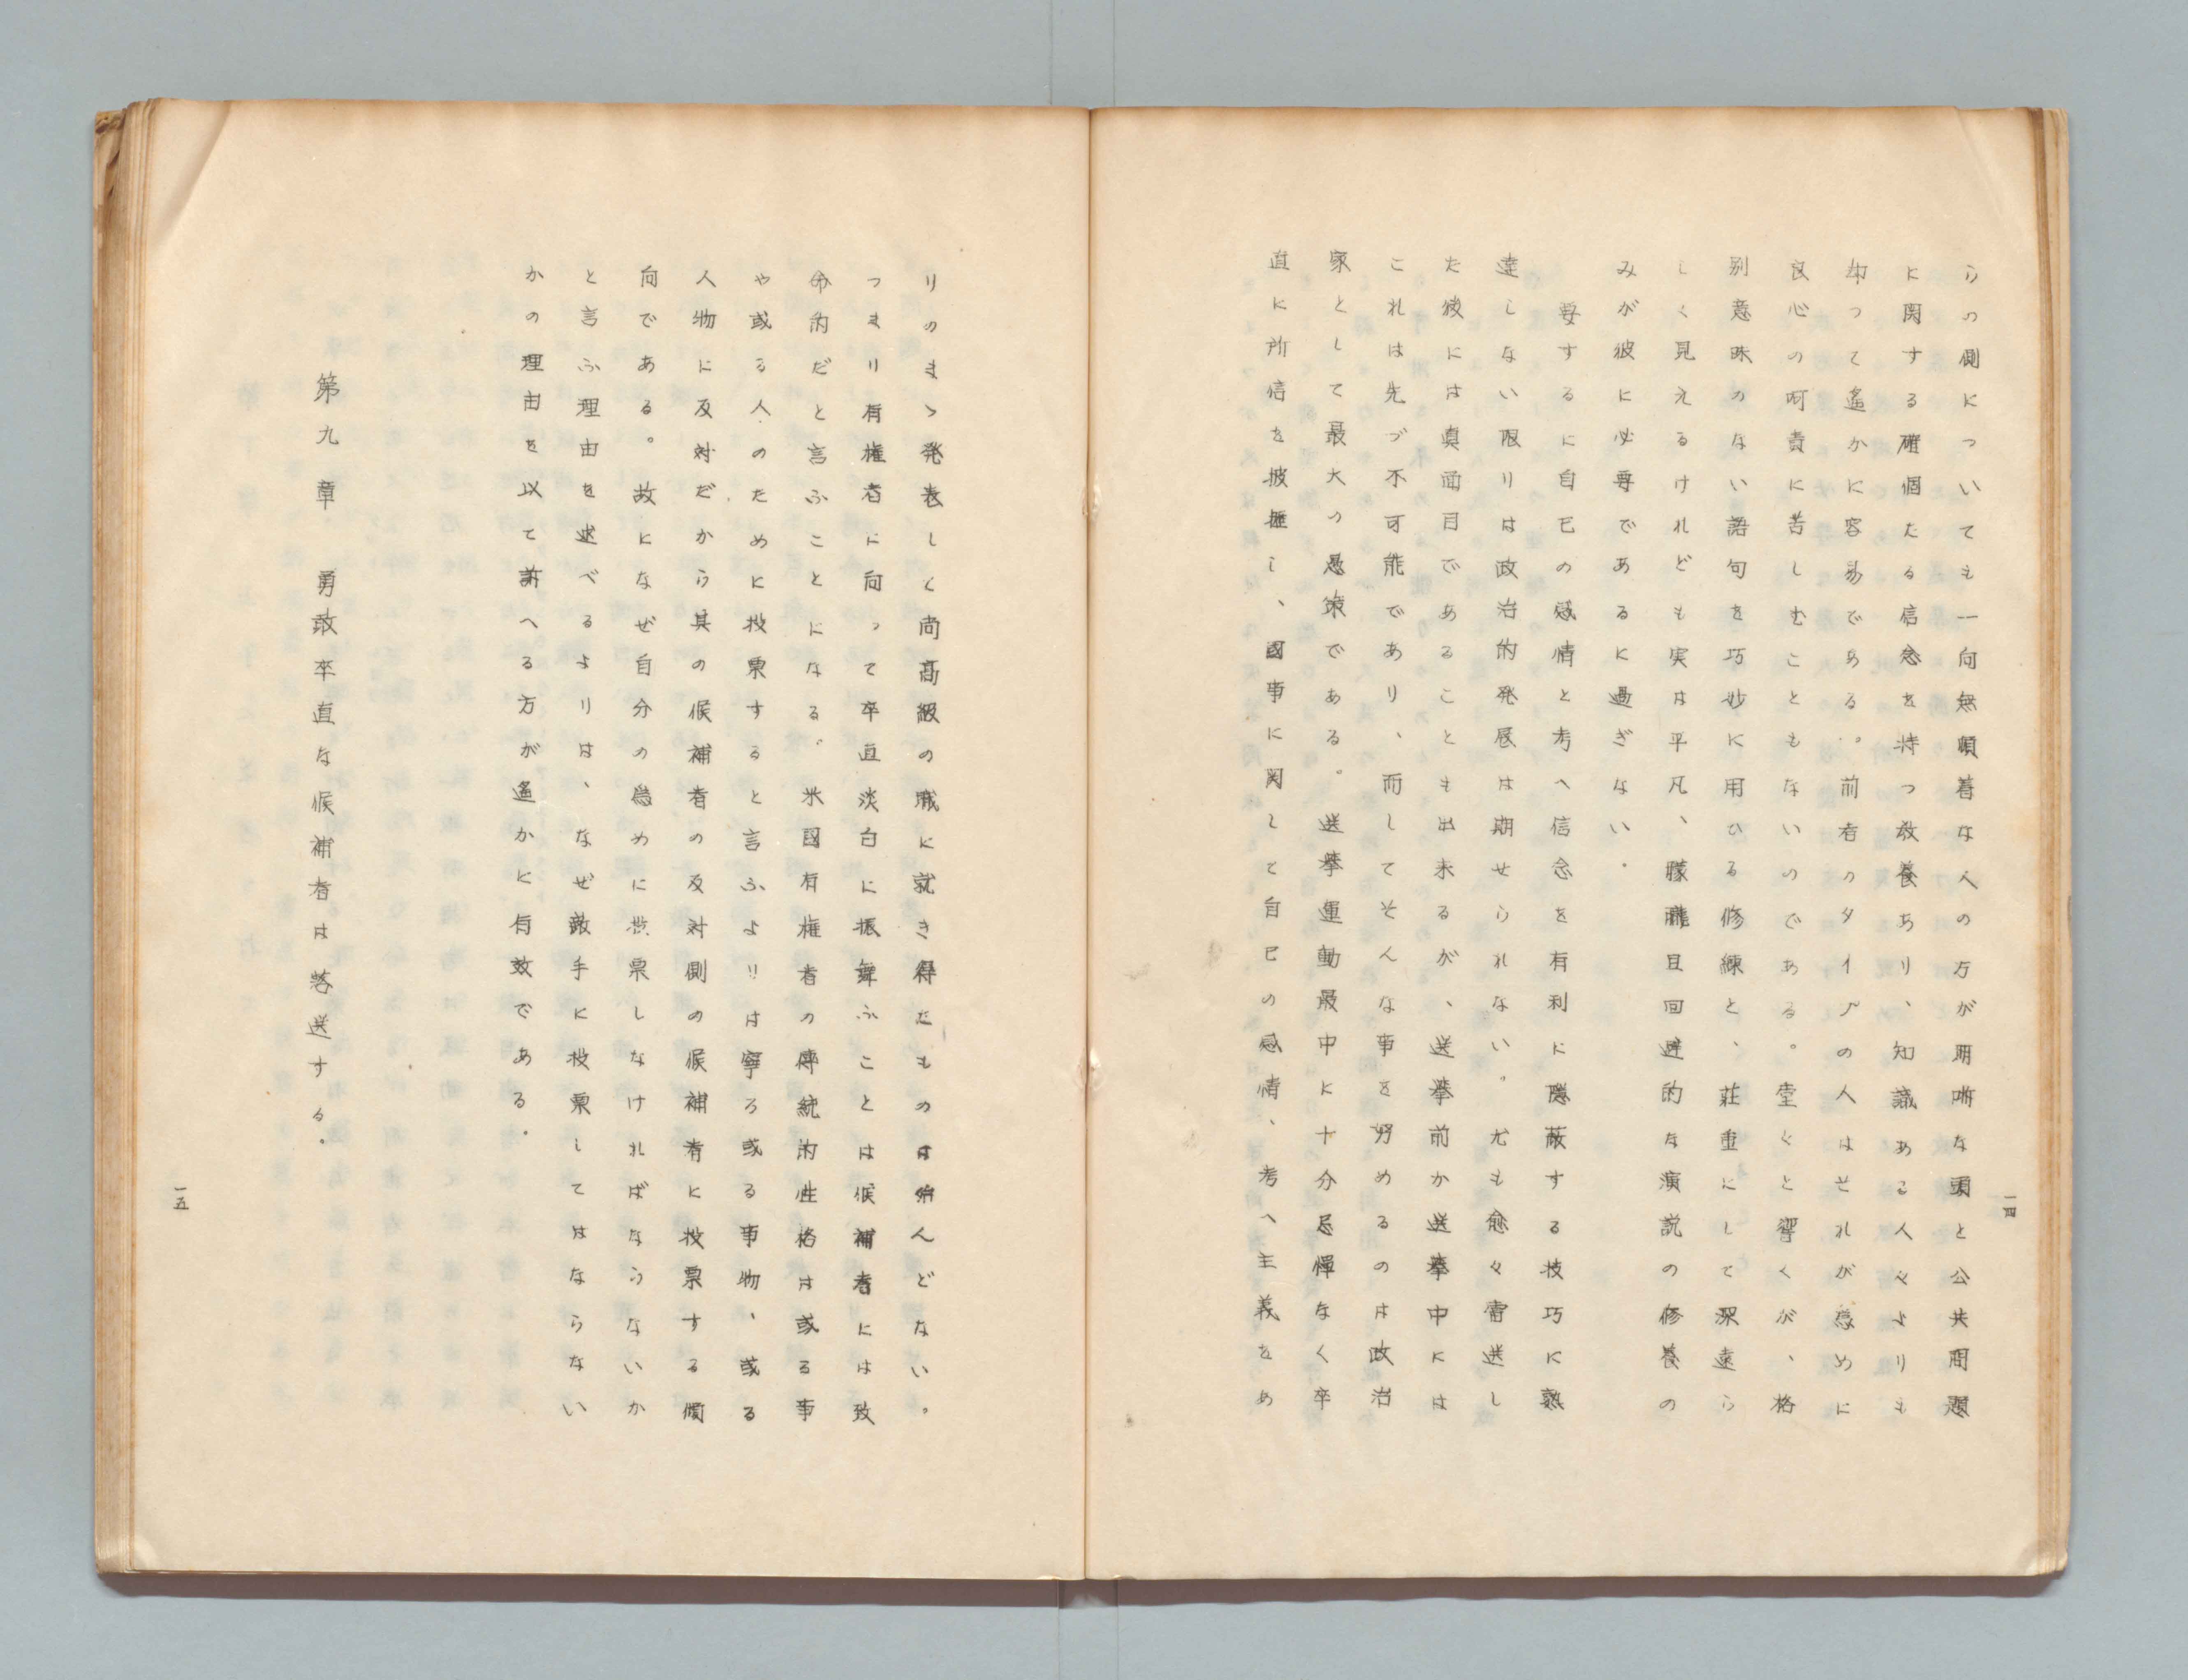 らの側についても一向無頓着な人の方が明晰な頭と公共問題
に関する確個たる信念を持つ教養あり、知識ある人々よりも
却つて遙かに容易である。前者のタイプの人はそれが為めに
良心の呵責に苦しむこともないのである。堂々と響くが、格
別意味のない語句を巧妙に用ひる修練と、莊重にして深遠ら
しく見えるけれども実は平凡、朦朧且回避的な演説の修養の
みが彼に必要であるに過ぎない。
要するに自己の感情と考へ信念を有利に隠蔽する技巧に熟
達しない限りは政治的発展は期せられない。尤も愈々當選し
た後には真面目であることも出来るが、選挙前か選挙中には
これは先づ不可能であり、而してそんな事を努めるのは政治
家として最大の愚策である。選挙運動最中に十分忌憚なく卒
直に所信を披瀝し、國事に関して自己の感情、考へ主義をあ
一四
りのまゝ発表して尚高級の職に就き得たものは殆んどない。
つまり有権者に向つて卒直淡白に振舞ふことは候補者には致
命的だと言ふことになる。米國有権者の傳統的性格は或る事
や或る人のために投票すると言ふよりは寧ろ或る事物、或る
人物に反対だから其の候補者の反対側の候補者に投票する傾
向である。故になぜ自分の為めに投票しなければならないか
と言ふ理由を述べるよりは、なぜ敵手に投票してはならない
かの理由を以て訴へる方が遙かに有效である。
第九章　勇敢卒直な候補者は落選する。
一五